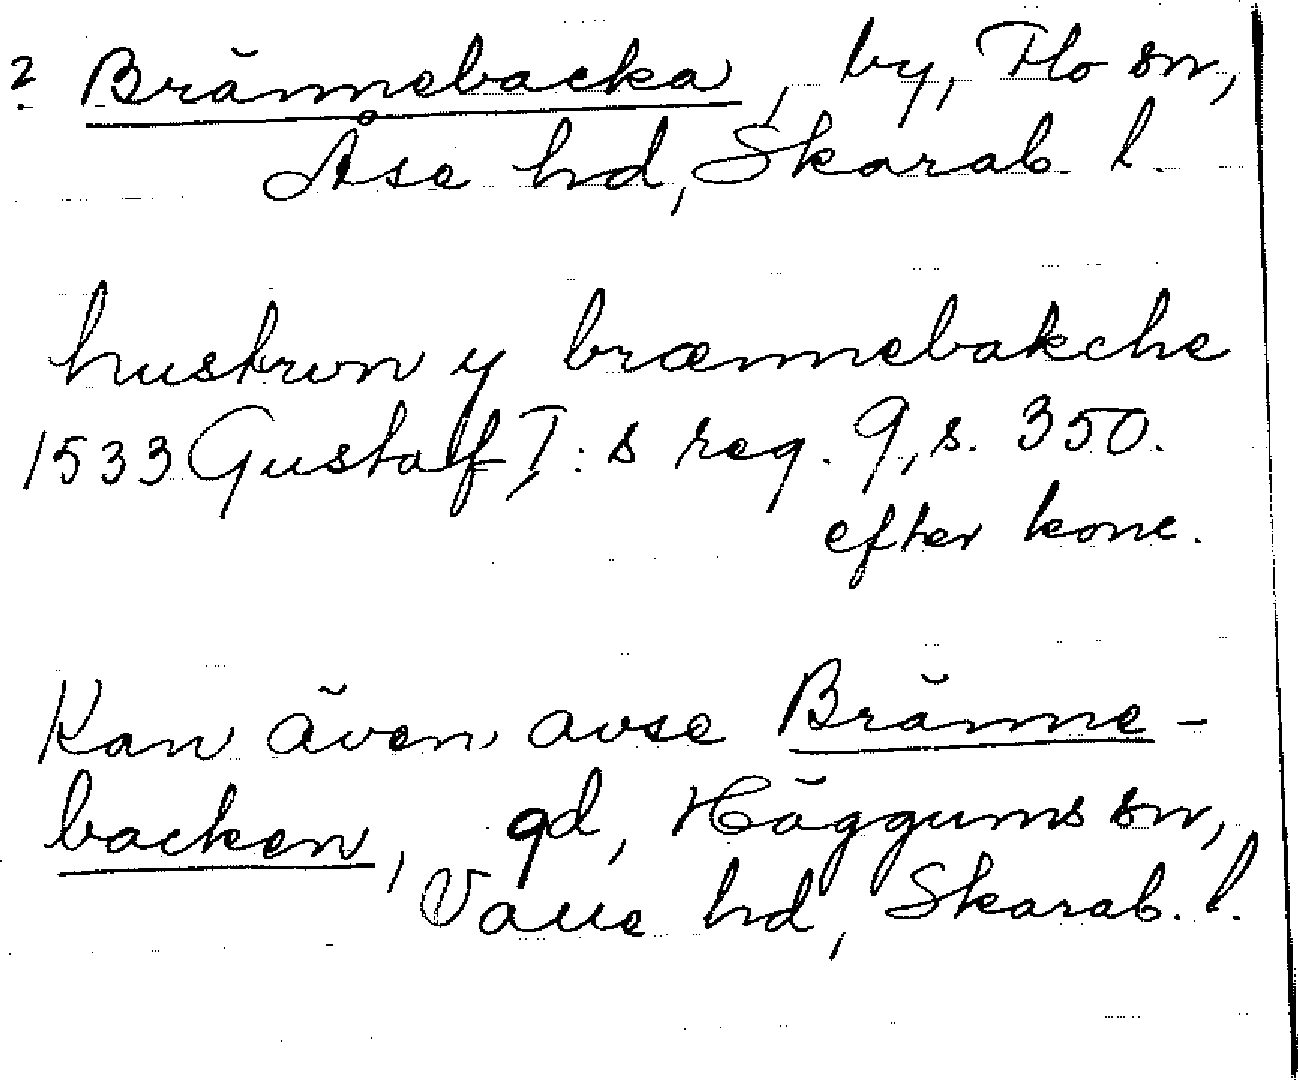 ? Brännebacka, by, Flo sn,
Åse hd, Skarab. l.
hustrvn y brænnebakche
1533 Gustaf I:s reg. 9, s. 350.
efter konc.
Kan även avse Bränne-
backen, gd, Häggums sn,
Valle hd, Skarab. l.